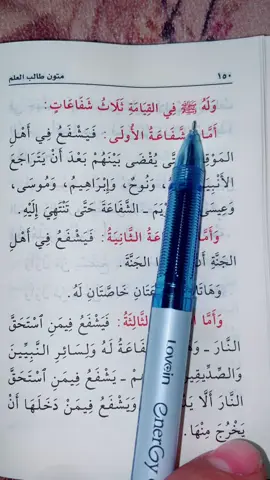 ١٥٠ متون طالب العلم
وَلَهُ ﷺ فِي القِيَامَةِ ثَلَاثُ شَفَاعَاتٍ:
أَمَّا الأُولَى: فَيَشْفَعُ فِي أَهْلِ
يُقْضَى بَيْنَهُمْ بَعْدَ أَنْ يَتَرَاجَعَ
وَنُوحٌ، وَإِبْرَاهِيمُ، وَمُوسَى،
وَعِيسَى الشَّفَاعَةَ حَتَّى تَنْتَهِيَ إِلَيْهِ.
وَأَمَّا الثَّانِيَةُ: فَيَشْفَعُ فِي أَهْلِ
الجَنَّةِ الجَنَّةَ.
خَاصَّتَانِ لَهُ.
وَأَمَّا الثَّالِثَةُ: فَيَشْفَعُ فِيمَنِ اسْتَحَقَّ
النَّارَ ـ لَهُ وَلِسَائِرِ النَّبِيِّينَ
يَشْفَعُ فِيمَنِ اسْتَحَقَّ
النَّارَ أَلَّا وَيَشْفَعُ فِيمَنْ دَخَلَهَا أَنْ
يَخْرُجَ مِنْهَا.
Lovein enerGy